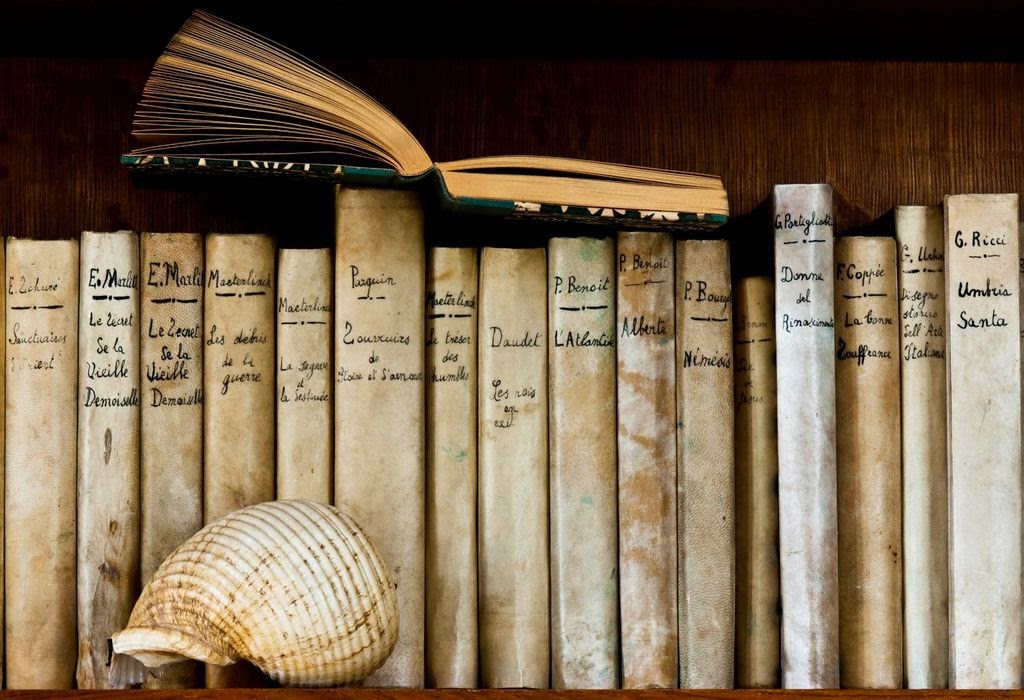 E. Zchuré
Sanctuaires
d'Orient
E. Marlitt
Le Zecret
De la
Vieille
Demoiselle
E. Marlit
Le Zecret
De la
Vieille
Demoiselle
Maeterlinck
Les débris
de la
guerre
Maeterlinck
La sagesse
et
la destinée
Pasquin
Zouvenirs
de
Maeterlinck
Le trésor
des
humbles
Daudet
Les rois
en
exil
P. Benoit
L'Atlantide
P. Benoit
Alberte
P. Bourget
Némésis
Renan
G. Portigliotti
Donne
del
Rinascimento
F. Coppée
La bonne
Zouffrance
Disegno
storico
dell'Arte
Italiana
G. Ricci
Umbria
Santa